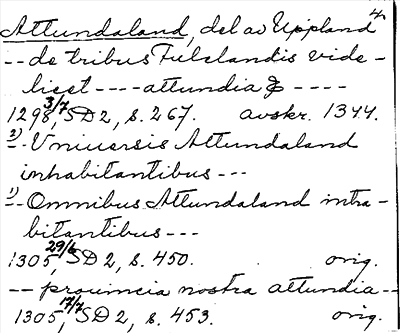 Attundaland, del av Uppland 4.
-- de tribus Fulslandis vide-
licet ---- attundia & ----
1298 3/7, SD 2, s. 267. avskr. 1344.
2) -- Vniuersis Attundaland
inhabitantibus ---
1) -- Omnibus Attundaland inha-
bitantibus ---
1305 29/6, SD 2, s. 450. orig.
-- prouincia nostra attundia --
1305 17/7, SD 2, s. 453. orig.